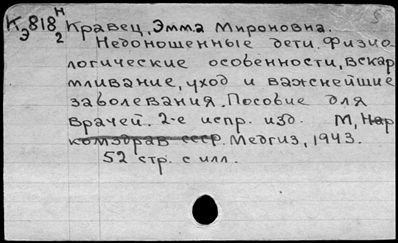 К Э 818 Н 2 Кравец, Эмма Мироновна.
Недоношенные дети. Физио
логические особенности, вскар
мливание, уход и важнейшие
заболевания. Пособие для
врачей. 2-е испр. изд. М, Нар
комздрав ссср. Медгиз, 1943.
52 стр. с илл.